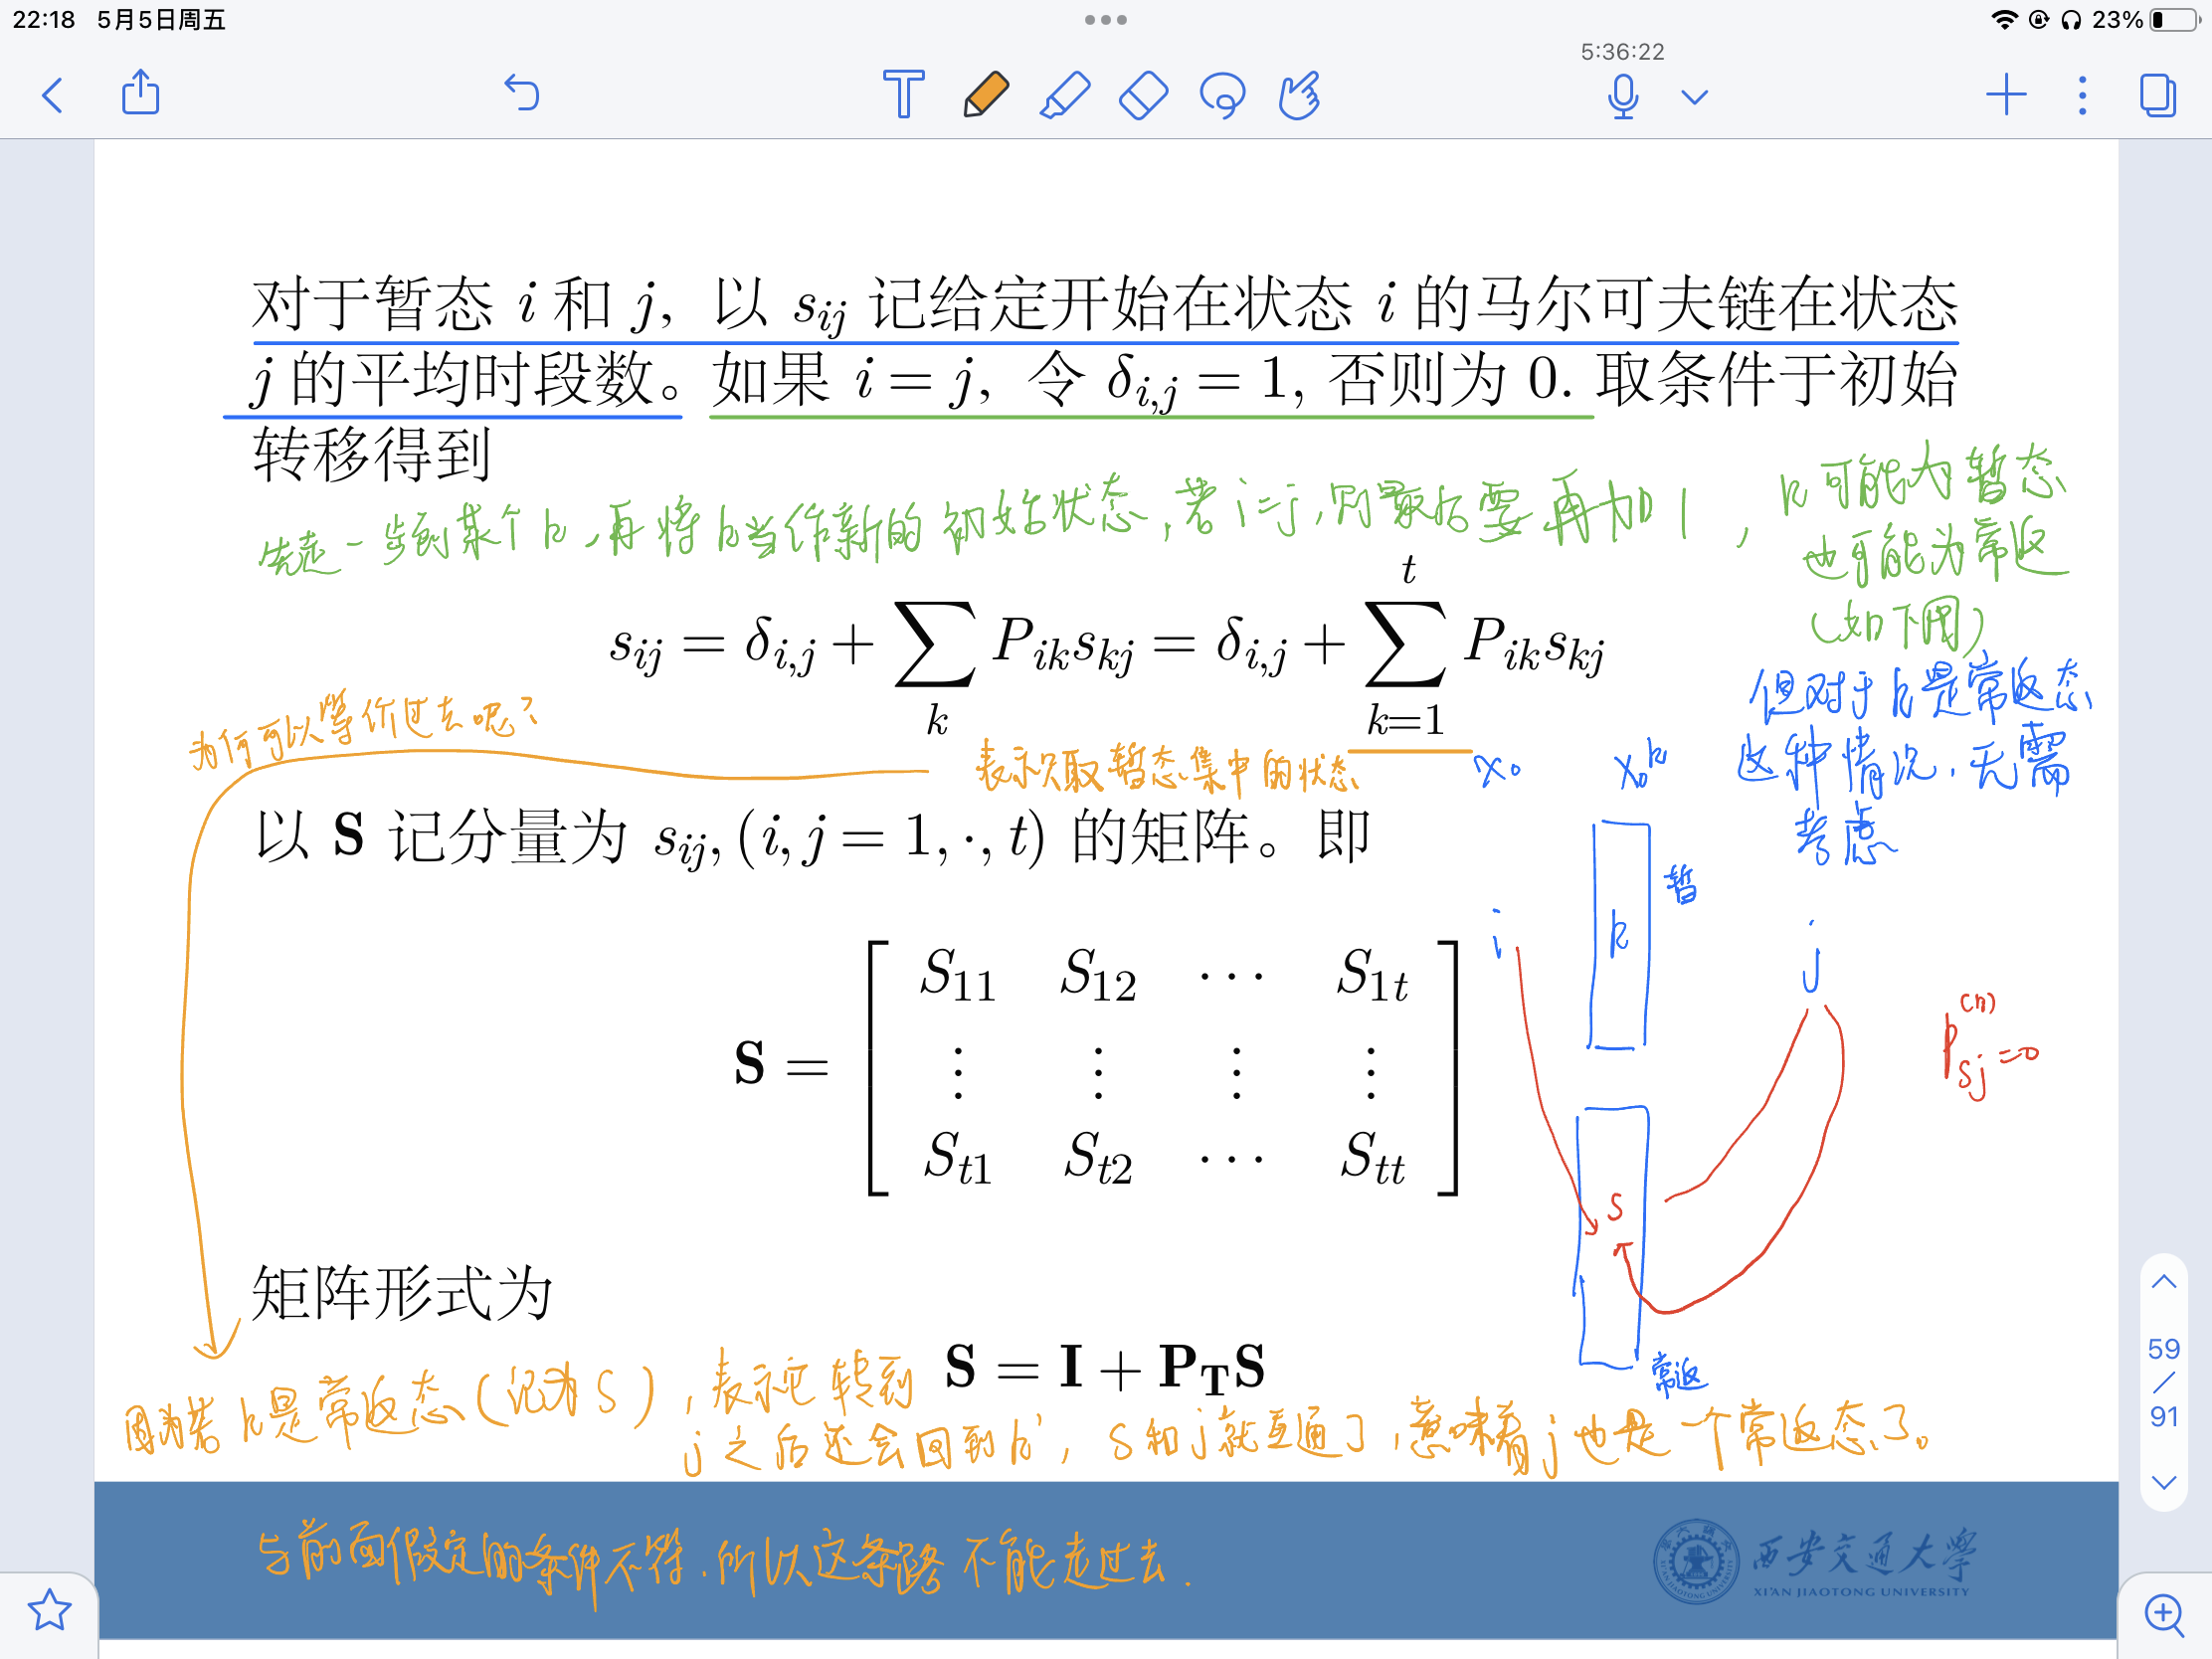 22:18 5月5日周五
23%
5:36:22
对于暂态 i 和 j, 以 s_{ij} 记给定开始在状态 i 的马尔可夫链在状态
j 的平均时段数。如果 i = j, 令 δ_{i,j} = 1, 否则为 0. 取条件于初始
转移得到
先走一步到某个k,再将k当作新的初始状态,若i=j,则最后要再加1,
k可能为暂态
也可能为常返
(如下图)
s_{ij} = δ_{i,j} + ∑_{k} P_{ik}s_{kj} = δ_{i,j} + ∑_{k=1}^{t} P_{ik}s_{kj}
但对于k是常返态
这种情况,无需
考虑
为何可以等价过去呢?
表示只取暂态集中的状态
x_0
以 S 记分量为 s_{ij}, (i, j = 1, ·, t) 的矩阵。即
暂
i
k
j
S =
S_{11} S_{12} ⋯ S_{1t}
⋮ ⋮ ⋮ ⋮
S_{t1} S_{t2} ⋯ S_{tt}
P_{sj}^{(n)}=0
s
常返
矩阵形式为
S = I + P_T S
因为若k是常返态(记为S),表示它转到
j之后还会回到k,S和j就互通了,意味着j也是一个常返态了。
与前面假定的条件不符.所以这条路不能走过去.
西安交通大学
XI'AN JIAOTONG UNIVERSITY
59
/
91